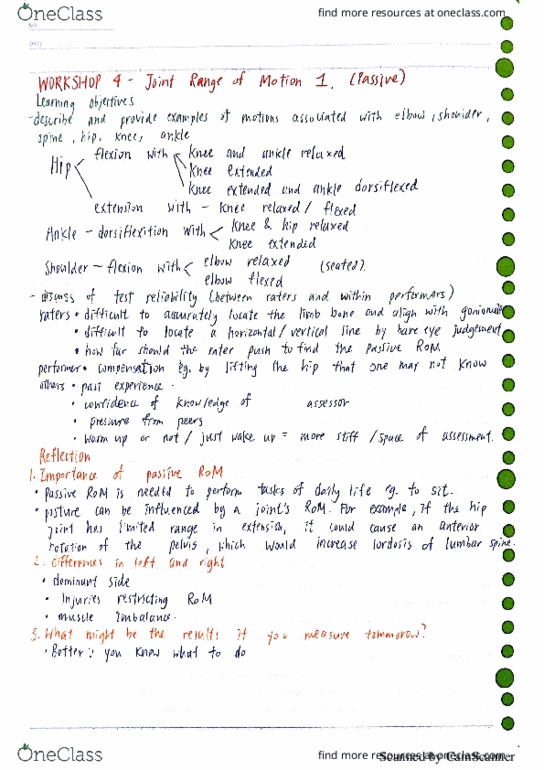 OneClass
find more resources at oneclass.com
NO
DATE
WORKSHOP 4 - Joint Range of Motion 1. (Passive)
Learning objectives
-describe and provide examples of motions associated with elbow, shoulder,
spine, hip, knee, ankle
Hip
flexion with
knee and ankle relaxed
knee extended
knee extended and ankle dorsiflexed
extension with - knee relaxed / flexed
Ankle - dorsiflexition with
knee & hip relaxed
knee extended
Shoulder - flexion with
elbow relaxed
elbow flexed
(seated).
- discuss of test reliability (between raters and within performers)
raters • difficult to accurately locate the limb bone and align with
• difficult to locate a horizontal / vertical line by bare eye judgement
• how far should the rater push to find the passive ROM
performer • compensation eg. by lifting the hip that one may not know
others • past experience.
• confidence of knowledge of assessor
• pressure from peers
• warm up or not / just wake up = more stiff / space of assessment.
Reflection
1. Importance of passive RoM
• Passive RoM is needed to perform tasks of daily life eg. to sit.
• posture can be influenced by a joint's RoM. For example, if the hip
joint has limited range in extension, it could cause an anterior
rotation of the pelvis, which would increase lordosis of lumbar spine.
2. Differences in left and right
• dominant side
• Injuries restricting RoM
• muscle imbalance.
3. What might be the results if you measure tommorow?
• Better : you know what to do
OneClass
find more resources at oneclass.com
Scanned by CamScanner